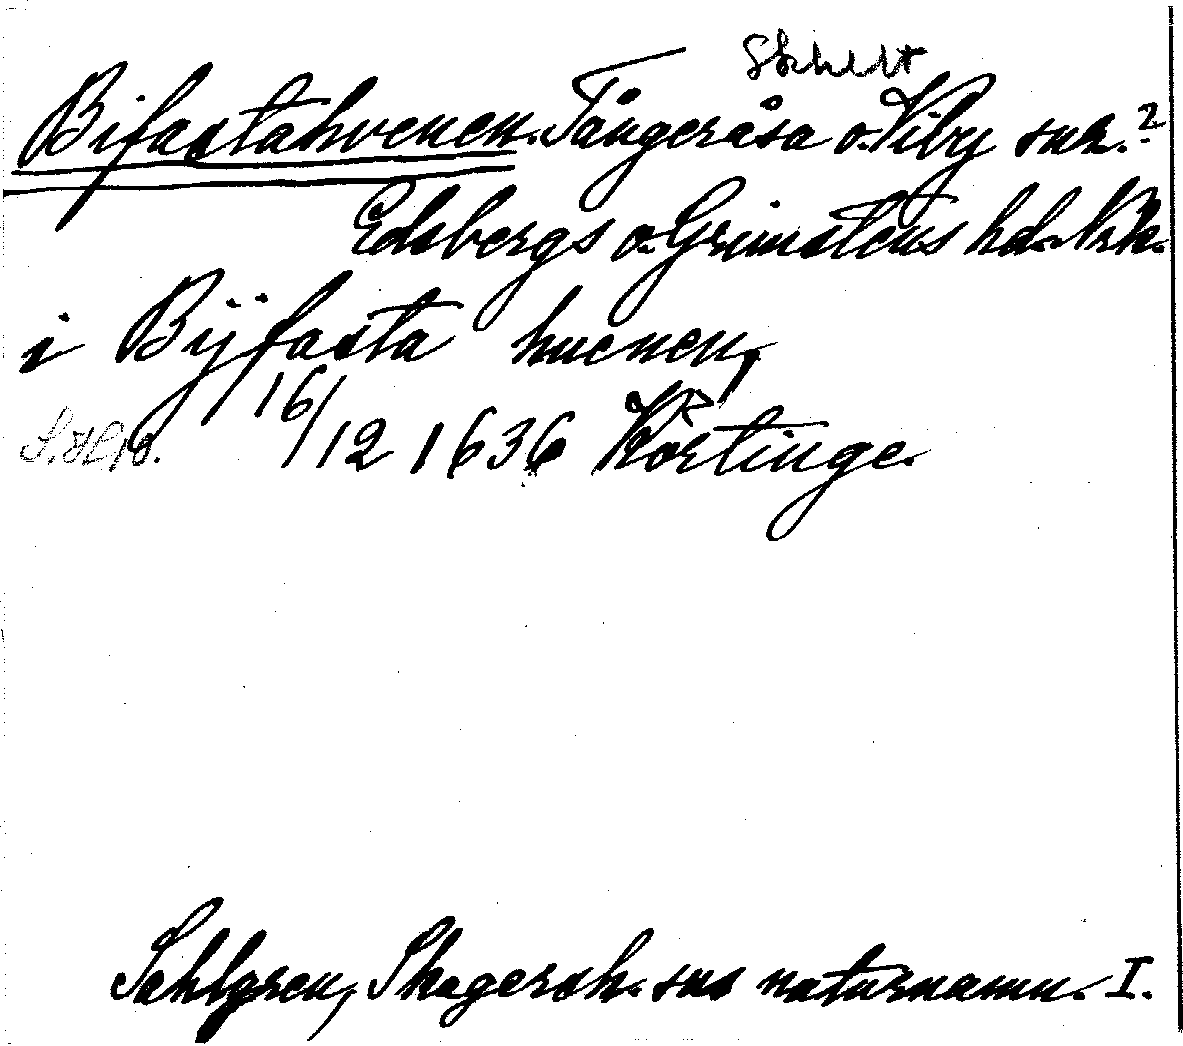 Bifastahvenen. Tångeråsa o. Viby snr.?
Edsbergs o. Grimstens hd. Nrk.
i Bÿfasta huenen,
16/12 1636 Körtinge.
Sahlgren, Skagersh. sns naturnamn. I.